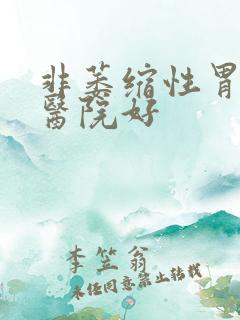 非萎缩性胃
醫院好
李笠翁
未任同意禁止转载